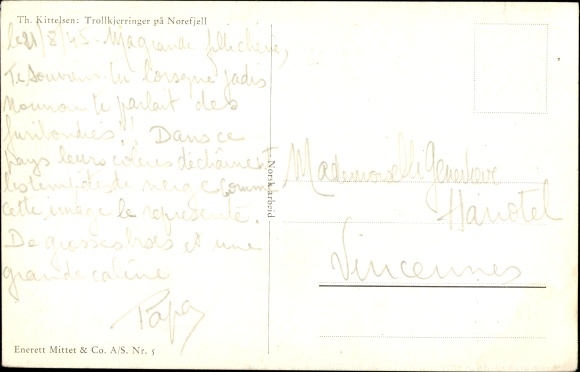 Th. Kittelsen: Trollkjerringer på Norefjell
le 21/8/45. Ma grande fille chérie,
Te souviens-tu lorsque jadis
Nounou te parlait des
furibondes!! Dans ce
pays leurs colères déchaînent
les tempêtes de neige comme
cette image le représente.
De grosses bises et une
grande câline
Papa
Enerett Mittet & Co. A/S. Nr. 5
Norsk arbeid
Mademoiselle Geneviève
Hanotel
Vincennes